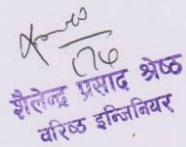 शैलेन्द्र प्रसाद श्रेष्ठ
वरिष्ठ इन्जिनियर